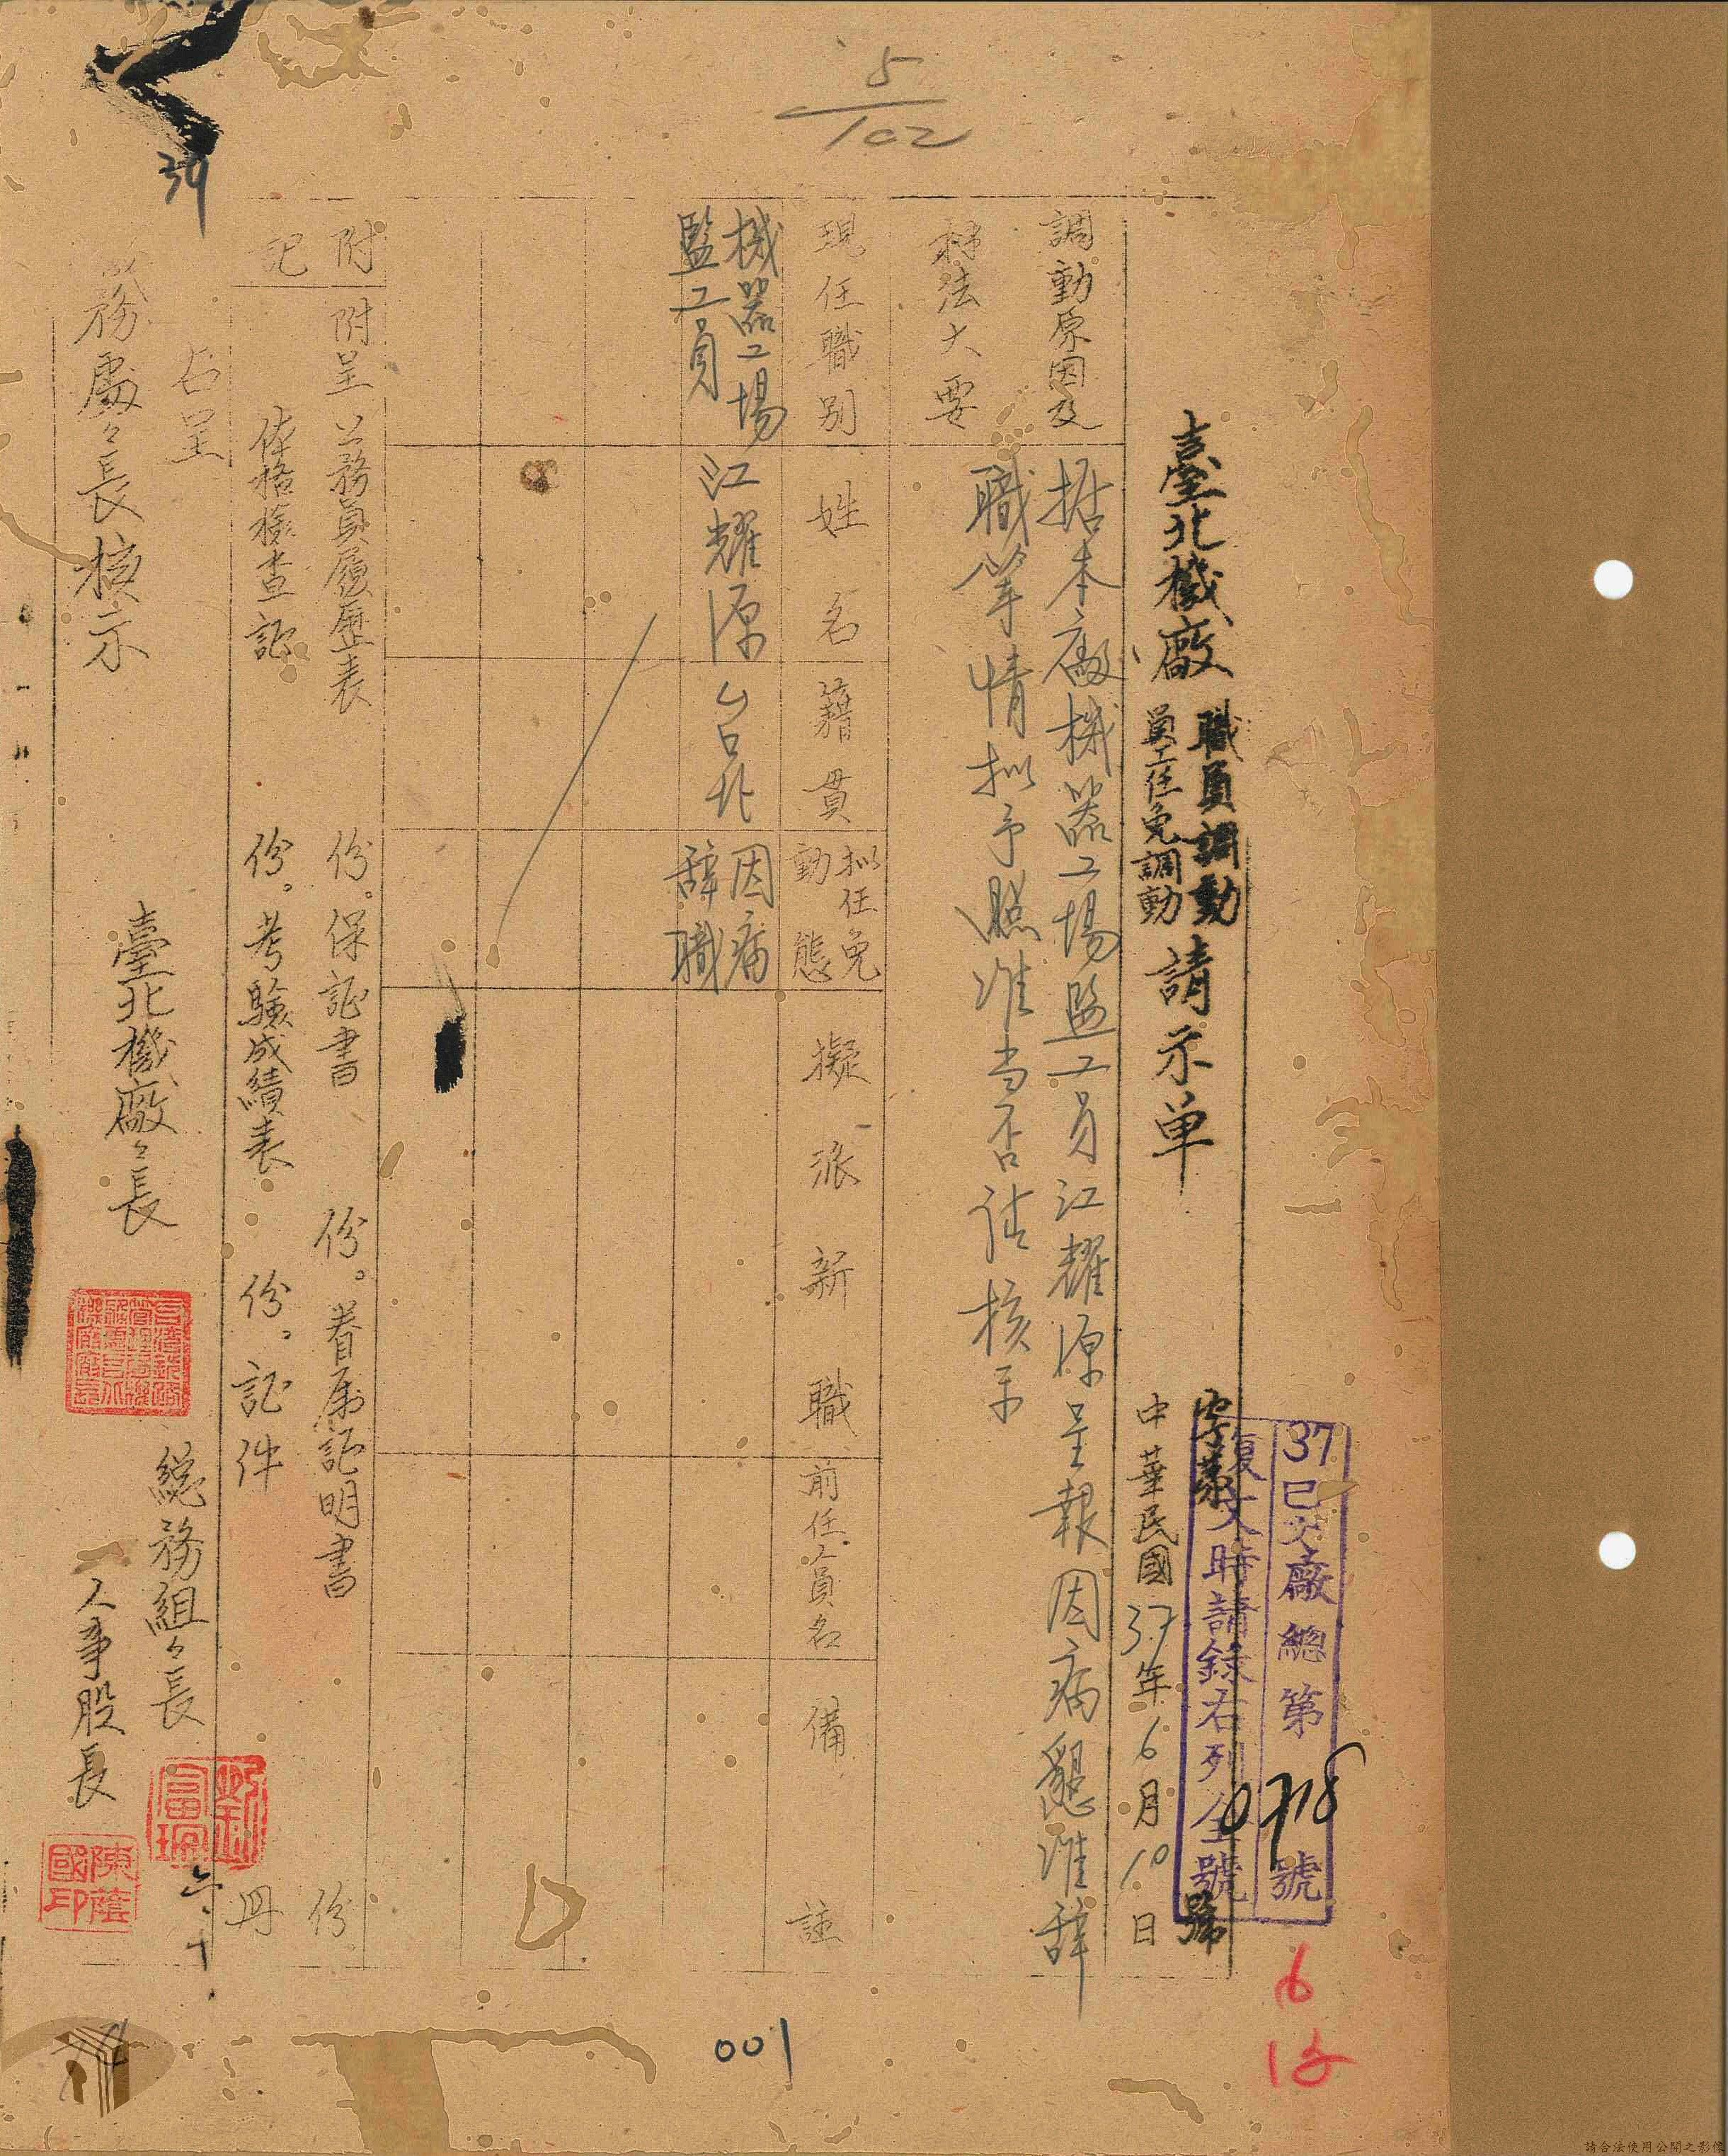 5/102
臺北機廠 職員調動 員工任免調動 請示单
字第 號
中華民國37年6月10日
37 已文廠總第0718號
復文時請錄右列全號
6
15
調動原因及
辦法大要
據本廠機器工場監工員江耀源呈報因病懇准辞
職等情拟予照准当否請核示
現任職別
姓名
籍貫
拟任免
動態
擬派新職
前任人員名
備註
機器工場
監工員
江耀源
台北
因病
辞職
附記
附呈公務員履歷表 份。保証書 份。眷屬証明書 份
体格檢查証 份。考驗成績表 份。証件 冊
右呈
務處々長核示
臺北機廠々長
總務組々長
人事股長
陳蔭國印
六.十.
39
001
請合法使用公開之影像